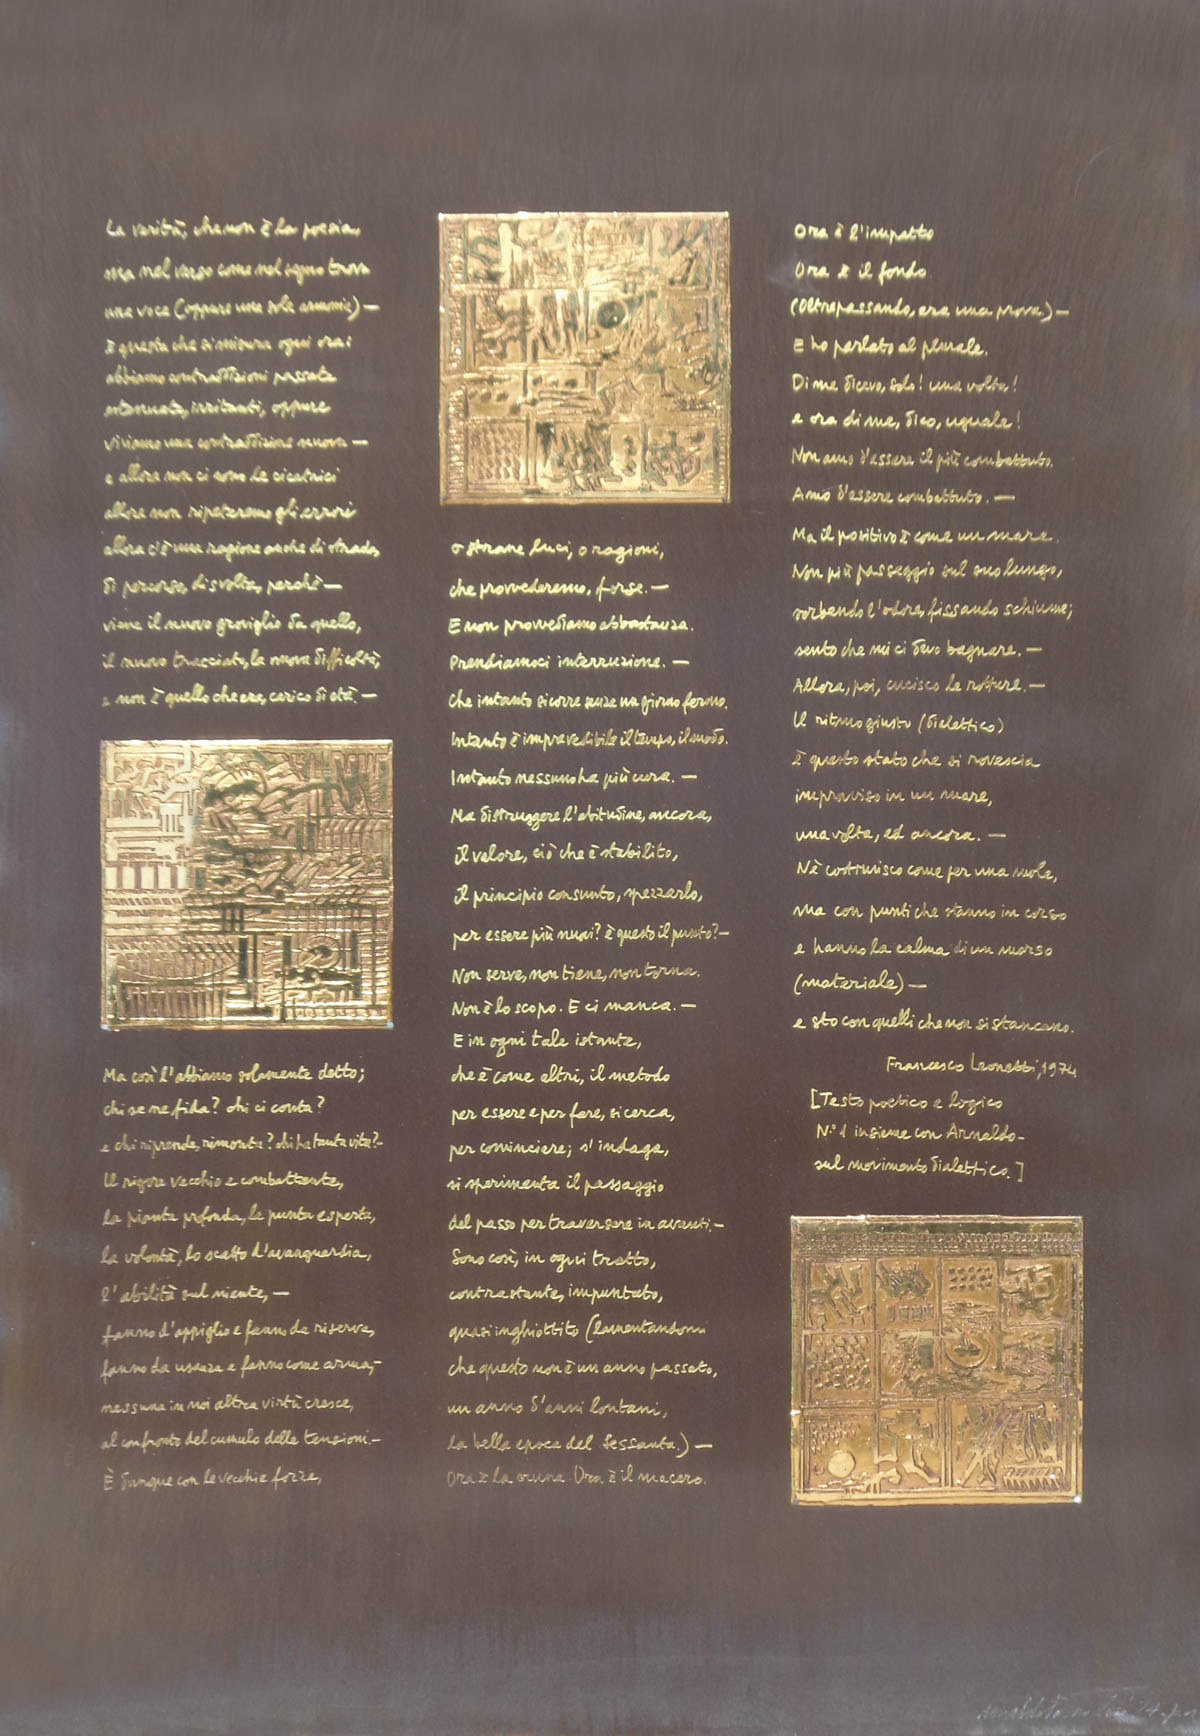 La verità, che non è la poesia,
ma nel verso come nel segno trova
una voce (oppure una sola armonia) —
è questa che si misura ogni ora:
abbiamo contraddizioni passate
estenuate, irritanti, oppure
viviamo una contraddizione nuova —
e allora non ci sono le cicatrici
allora non ripeteremo gli errori
allora c'è una ragione anche di strada,
di percorso, di svolta, perché —
viene il nuovo groviglio da quello,
il nuovo tracciato, la nuova difficoltà,
e non è quello che era, carico di età. —
Ma così l'abbiamo solamente detto;
chi se ne fida? chi ci conta?
e chi riprende, rimonta? chi ha tanta vita? —
Il rigore vecchio e combattente,
la pianta profonda, la punta esperta,
la volontà, lo scatto d'avanguardia,
l'abilità sul niente, —
fanno d'appiglio e fanno da riserva,
fanno da usanza e fanno come arma, —
nessuna in noi altra virtù cresce,
al confronto del cumulo delle tensioni. —
È dunque con le vecchie forze,
o strane luci, o ragioni,
che provvederemo, forse. —
E non provvediamo abbastanza.
Prendiamoci interruzione. —
Che intanto si corre senza un giorno fermo.
Intanto è imprevedibile il tempo, il modo.
Intanto nessuno ha più cura. —
Ma distruggere l'abitudine, ancora,
il valore, ciò che è stabilito,
il principio consunto, spezzarlo,
per essere più nuovi? è questo il punto? —
Non serve, non tiene, non torna.
Non è lo scopo. E ci manca. —
E in ogni tale istante,
che è come altri, il metodo
per essere e per fare, si cerca,
per cominciare; s'indaga,
si sperimenta il passaggio
del passo per traversare in avanti. —
Sono così, in ogni tratto,
contrastante, impuntato,
quasi inghiottito (lamentandomi
che questo non è un anno passato,
un anno d'anni lontani,
la bella epoca del Sessanta.) —
Ora è la cruna. Ora è il macero.
Ora è l'impatto
Ora è il fondo
(Oltrepassando, era una prova) —
E ho parlato al plurale.
Di me dicevo, solo! una volta!
e ora di me, dico, uguale!
Non amo d'essere il più combattuto.
Amo d'essere combattuto. —
Ma il positivo è come un mare.
Non più passeggio sul suo lungo,
sorbendo l'odore, fissando schiume;
sento che mi ci devo bagnare. —
Allora, poi, cucisco le rotture. —
Il ritmo giusto (dialettico)
è questo stato che si rovescia
improvviso in un mare,
una volta, ed ancora. —
Nè costruisco come per una mole,
ma con punti che stanno in corso
e hanno la calma di un morso
(materiale) —
e sto con quelli che non si stancano.
Francesco Leonetti, 1974
[Testo poetico e logico
N.° 1 insieme con Arnaldo -
sul movimento dialettico.]